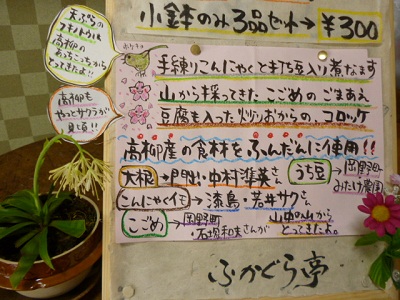 小鉢のみ3品セット→¥300
天ぷらの
高柳の
あっちこっちから
とってきたよ!!
高柳も
やっとサクラが
見頃!!
手練りこんにゃくと打ち豆入り煮なます
山から採ってきた、こごめのごまあえ
豆腐も入ったジューシィおからの、コロッケ
高柳産の食材をふんだんに使用!!
大根→門出・中村準英さん
うち豆→岡野町
みたけ農園
こんにゃくイモ→漆島・岩井サクさん
こごめ→岡野町
・石塚和未さんが
山中の山から
とってきたよ。
ふかぐら亭